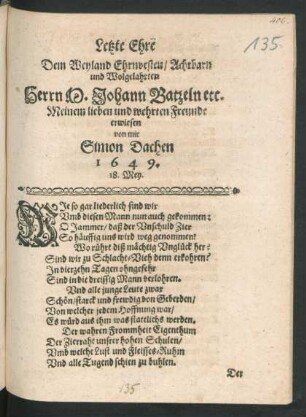 406.
135.
Letzte Ehre
Dem Weyland Ehrnvesten/ Achtbarn
und Wolgelahrten
Herrn M. Johann Batzeln etc.
Meinem lieben und wehrten Freunde
erwiesen
von mir
Simon Dachen
1649.
18. Mey.
DIe so gar liederlich sind wir
Vmb diesen Mann nun auch gekommen?
O Jammer/ daß der Vnschuld Zier
So häuffig uns wird weg genommen!
Wo rührt diß mächtig Vnglück her?
Sind wir zu Schlacht-Vieh denn erkohren?
In vierzehn Tagen ohngefehr
Sind in die dreissig Mann verlohren.
Vnd alle junge Leute zwar
Schön/ starck und frewdig von Geberden/
Von welcher jedem Hoffnung war/
Es würd aus ihm was stattlichs werden.
Der wahren Frommheit Eigenthum
Der Zierraht unsrer hohen Schulen/
Vmb welche Lust und Fleisses-Ruhm
Vnd alle Tugend schien zu buhlen.
Der
135